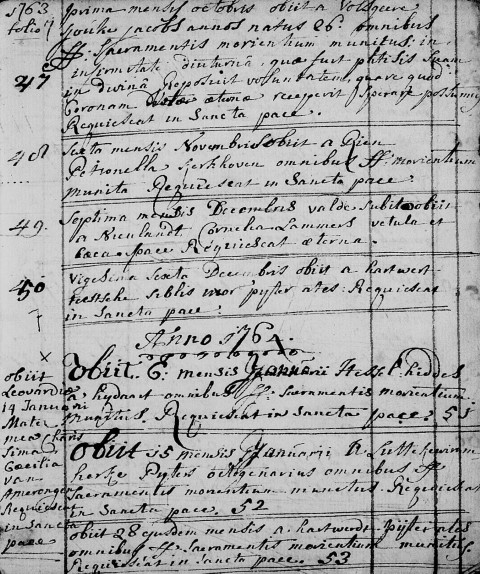 1763
folio 11
prima mensis octobris obiit a Volsgeere
jouke jacobs annos natus 26. omnibus
ff. Sacramentis morientium munitus: in
infirmitate diuturna, quae fuit phtisis suam
47
in divina reposuit voluntatem, quare quod
Coronam vitae aeternae receperit sperare possumus
Requiescat in Sancta pace.
48
Sexta mensis Novembris obiit a Rien
Petronella Kerkhoven omnibus ff. morientium
munita Requiescat in Sancta pace.
49.
Septima mensis Decembris valde subito obiit
a Nieulandt Cornelia Lammers vetula et
caeca. pace Requiescat aeterna.
50
Vigesima sexta Decembris obiit a hartwert
Requiescat
in Sancta pace.
Anno 1764.
obiit 6. mensis Januarii Hessel hiddes
a hydaart omnibus ff. Sacramentis morientium
munitus. Requiescat in Sancta pace. 51
x
obiit
Leovardiae
14 Januarii
Mater
mea charis
sima
Caecilia
van
Amerongen
Requiescat
in Sancta
pace
obiit 15 mensis Januarii a Lutkewierum
herke Pyters octogenarius omnibus ff.
Sacramentis morientium munitus. Requiescat
in Sancta pace 52
obiit 28 ejusdem mensis a hartwerdt. Pijtter ales
omnibus ff. Sacramentis morientium munitus.
Requiescat in Sancta pace. 53